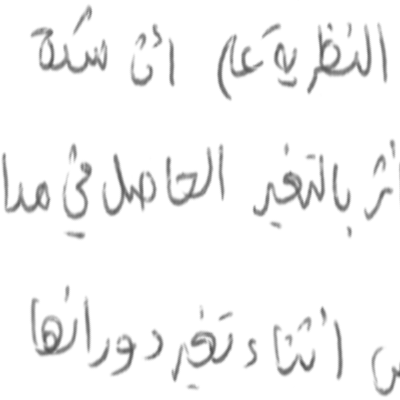 النظرية على أن شدة
بالتغير الحاصل في مدا
أثناء تغير دورانها